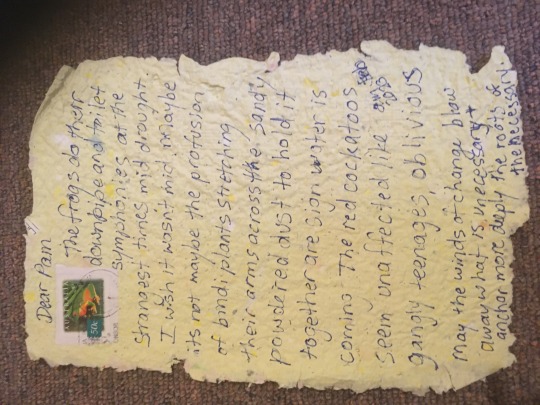 Dear Pam
The frogs do their
downpipe and toilet
symphonies at the
strangest times mid drought.
I wish it wasn't mid, maybe
its not maybe the protusion
of bindi plants stretching
their arms across the sandy,
powdered dust to hold it
together are sign water is
coming. The red cockatoos
seem unaffected like
gangly teenages, oblivious
May the winds of change blow
away what is unecessary +
anchor more deeply the roots of
the necessary.
50c